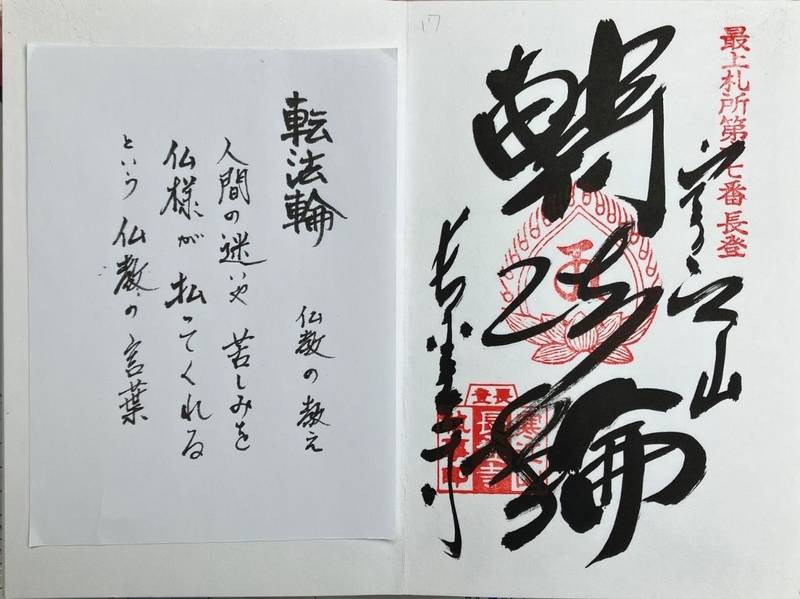 17
最上札所第十七番長登
寒江山
轉法輪
長登寺
長登
寒江山
長登寺
転法輪
仏教の教え
人間の迷いや苦しみを
仏様が払ってくれる
という仏教の言葉